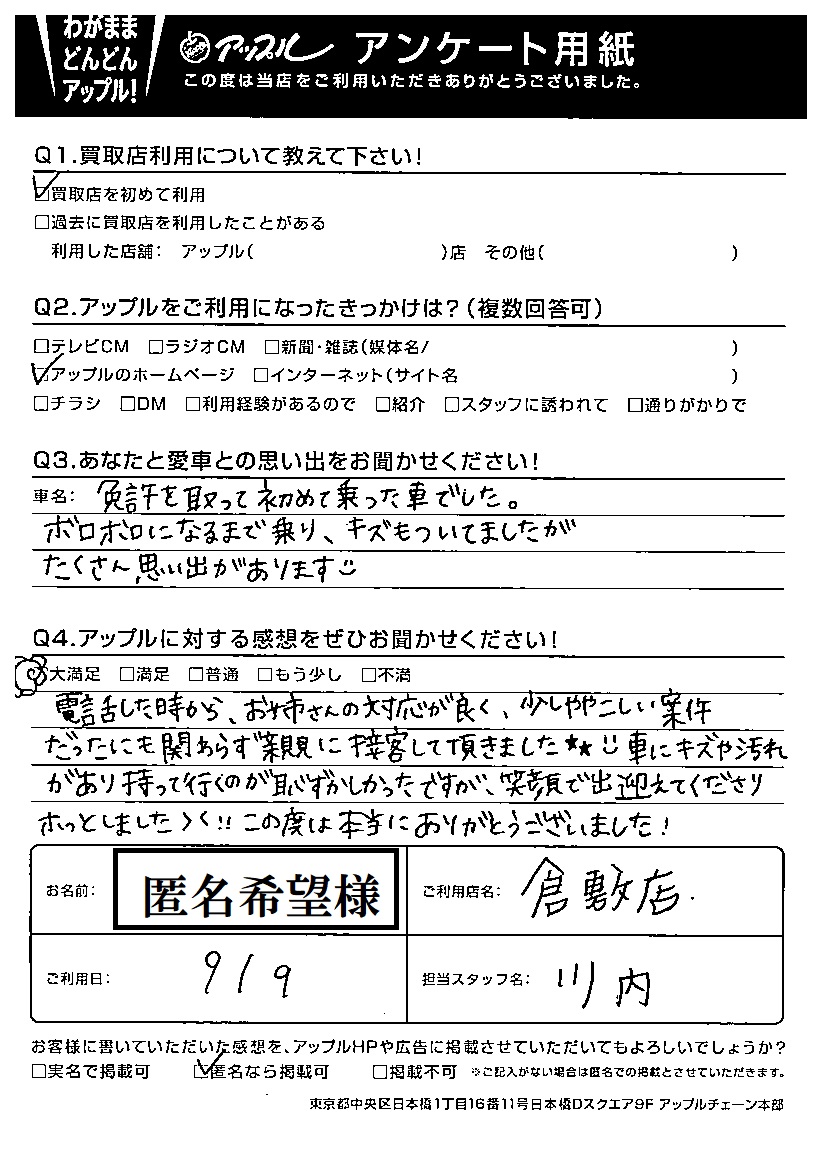 わがまま
どんどん
アップル!
アップル アンケート用紙
この度は当店をご利用いただきありがとうございました。
Q1.買取店利用について教えて下さい!
☑買取店を初めて利用
□過去に買取店を利用したことがある
利用した店舗: アップル( )店 その他( )
Q2.アップルをご利用になったきっかけは?(複数回答可)
□テレビCM □ラジオCM □新聞・雑誌(媒体名/ )
☑アップルのホームページ □インターネット(サイト名 )
□チラシ □DM □利用経験があるので □紹介 □スタッフに誘われて □通りがかりで
Q3.あなたと愛車との思い出をお聞かせください!
車名: 免許を取って初めて乗った車でした。
ボロボロになるまで乗り、キズもついてましたが
たくさん思い出があります
Q4.アップルに対する感想をぜひお聞かせください!
大満足 □満足 □普通 □もう少し □不満
電話した時から、お姉さんの対応が良く、少しややこしい案件
だったにも関わらず親親に接客して頂きました★★ 車にキズや汚れ
があり持って行くのが恥ずかしかったですが、笑顔で出迎えてくださり
ホッとしました〉〈!! この度は本当にありがとうございました!
お名前: 匿名希望様 ご利用店名: 倉敷店.
ご利用日: 9/9 担当スタッフ名: 川内
お客様に書いていただいた感想を、アップルHPや広告に掲載させていただいてもよろしいでしょうか?
□実名で掲載可 ☑匿名なら掲載可 □掲載不可 ※ご記入がない場合は匿名での掲載とさせていただきます。
東京都中央区日本橋1丁目16番11号日本橋Dスクエア9F アップルチェーン本部